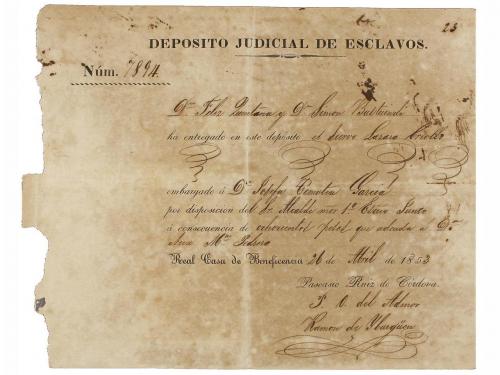 23
DEPOSITO JUDICIAL DE ESCLAVOS.
Núm. 7894.
Dn. Felix Quintana y Dn. Simon
ha entregado en este depósito el siervo Criollo
embargado á Da. Josefa Timotea Garcia
por disposicion del Sr. Alcalde mor. 1o.
á consecuencia de pesos que adeuda á
Ma.
Real Casa de Beneficencia 26 de Abril de 1853
Pascasio Ruiz de Córdova.
P. O. del Admor
Ramon de Ybargüen